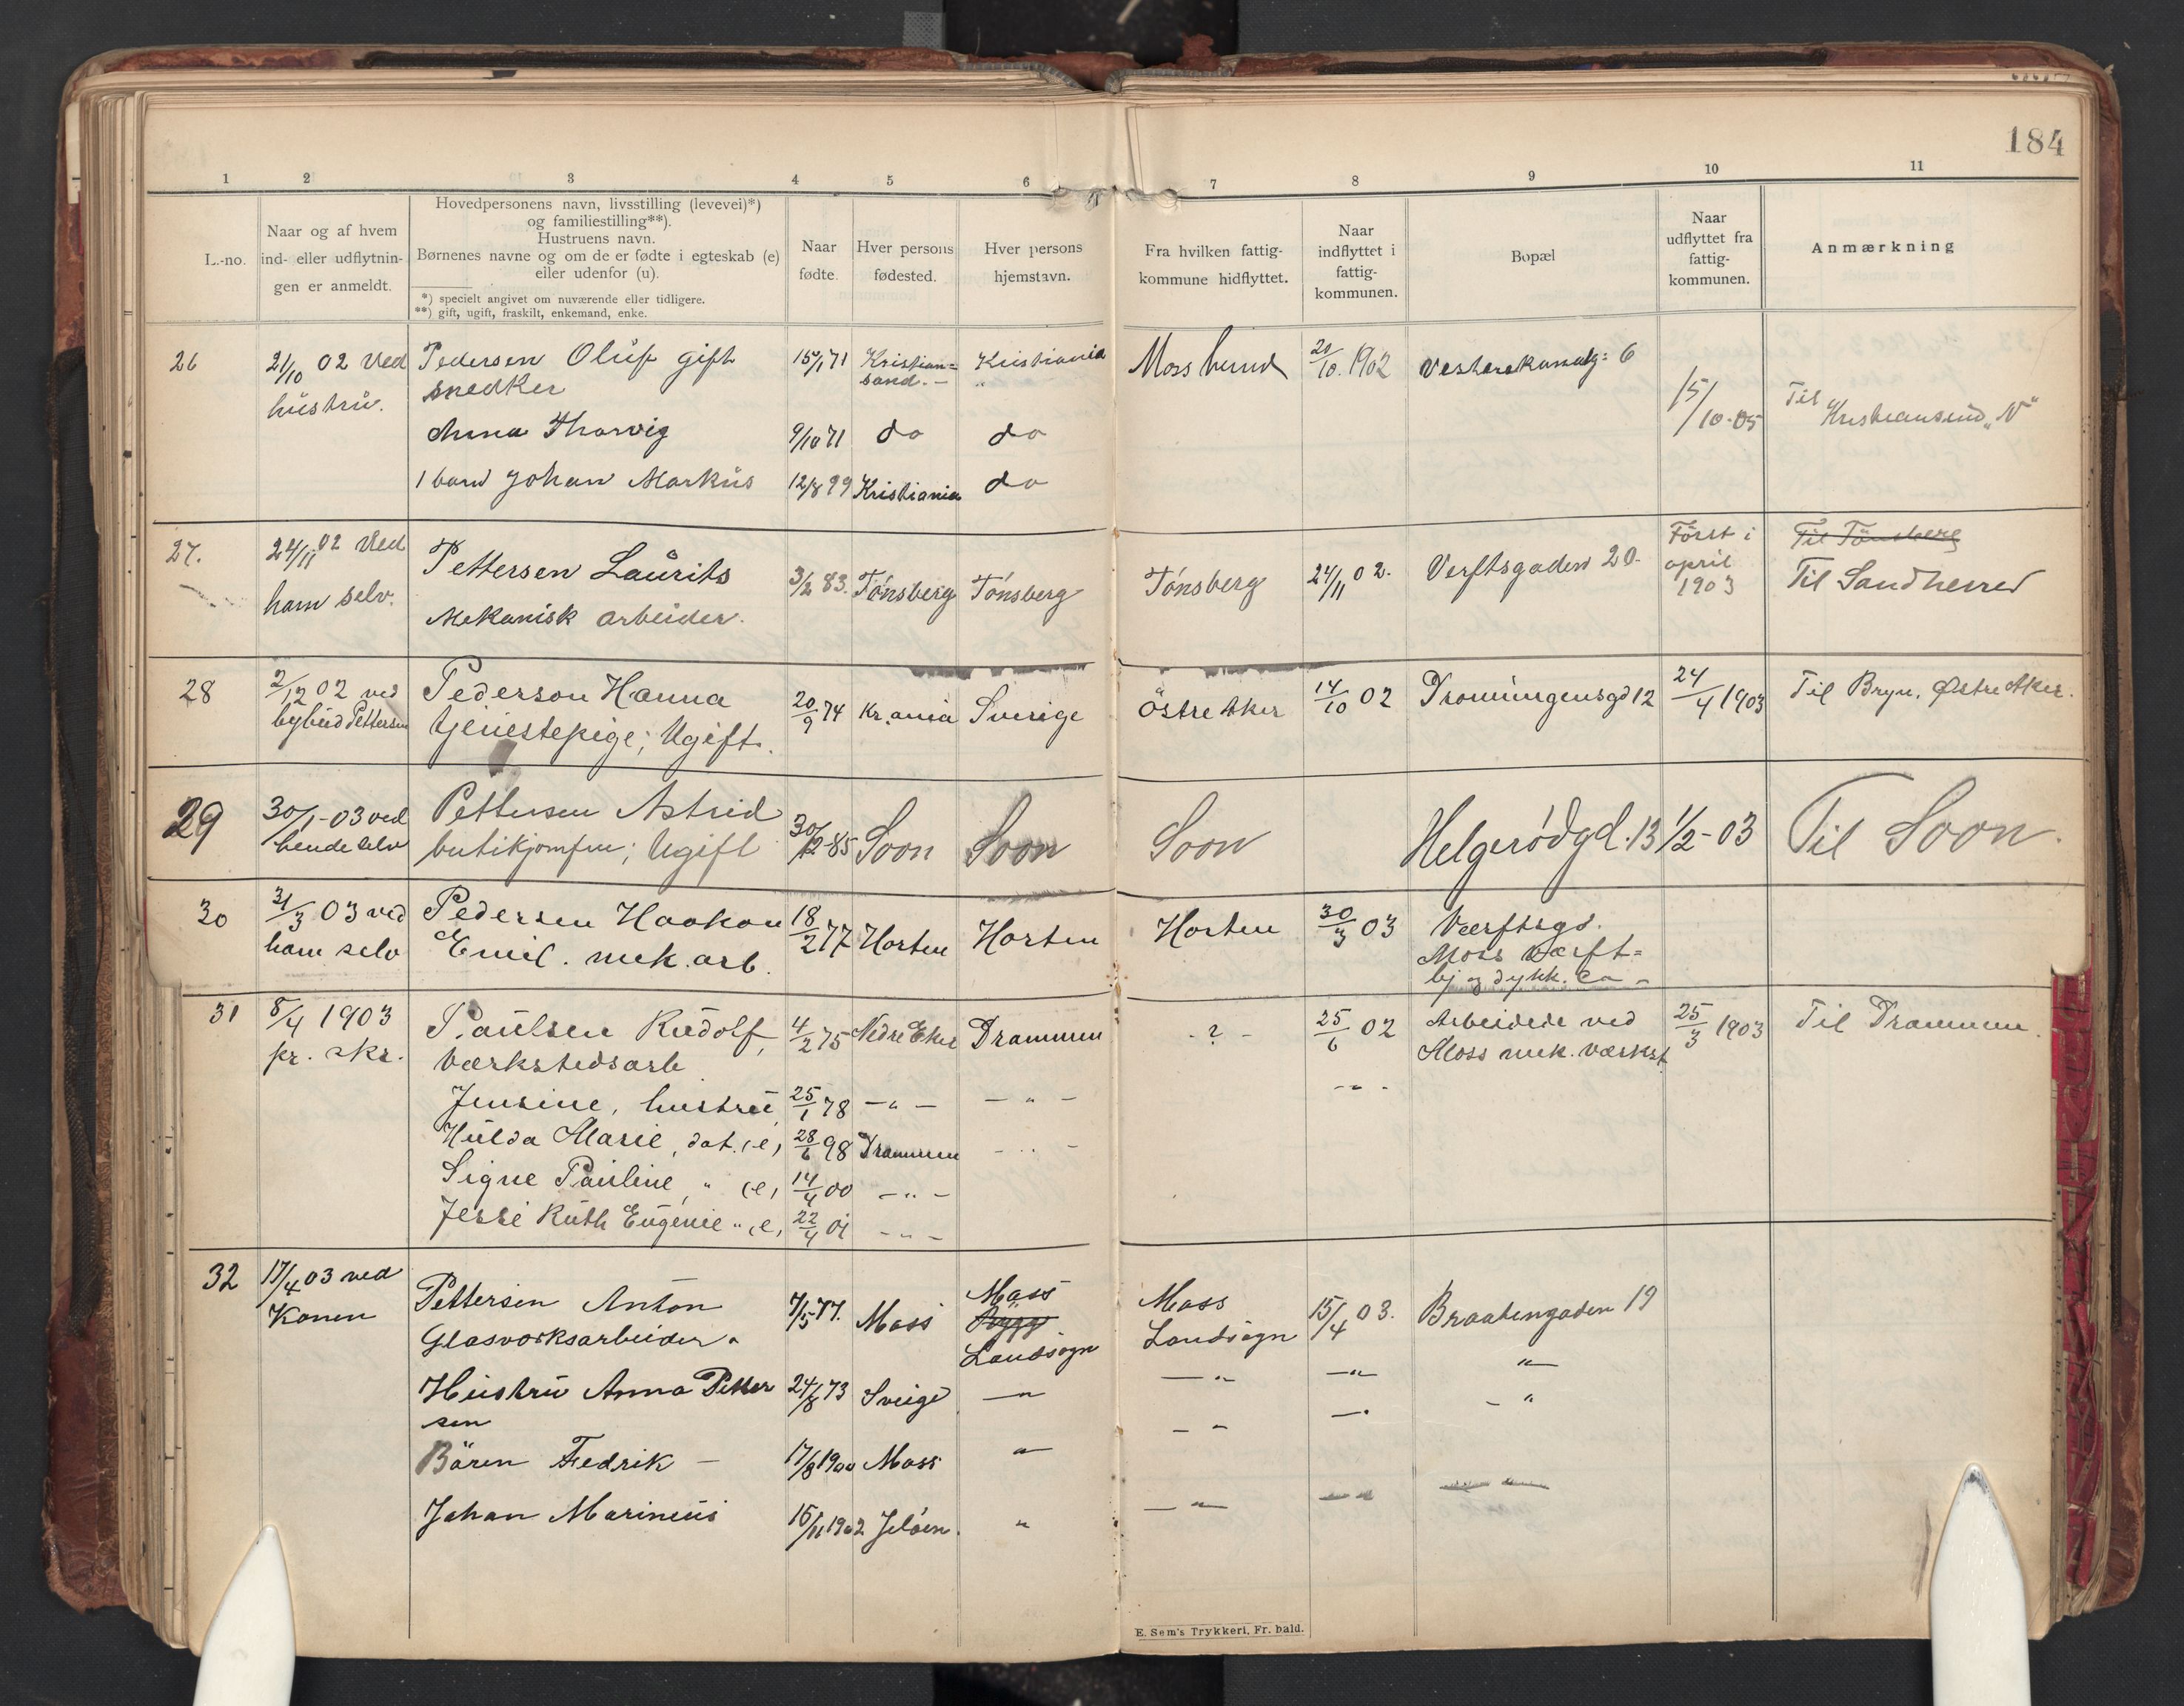 184
1 2 3 4 5 6 7 8 9 10 11
L.-no.
Naar og af hvem
ind- eller udflytnin-
gen er anmeldt.
Hovedpersonens navn, livsstilling (levevei)*)
og familiestilling**).
Hustruens navn.
Børnenes navne og om de er fødte i egteskab (e)
eller udenfor (u).
*) specielt angivet om nuværende eller tidligere.
**) gift, ugift, fraskilt, enkemand, enke.
Naar
fødte.
Hver persons
fødested.
Hver persons
hjemstavn.
Fra hvilken fattig-
kommune hidflyttet.
Naar
indflyttet i
fattig-
kommunen.
Bopæl
Naar
udflyttet fra
fattig-
kommunen.
Anmærkning
26 21/10 02 ved Pedersen Oluf gift 15/1 71 Kristian= Kristiania Moss lund 20/10 1902 Vesterekanalg: 6
hustru. snedker sand. - " 15/10-05 Til Kristiansund „N"
Anna Tharvig 9/10 71 do do
1 barn Johan Markus 12/8 99 Kristiania do
27. 24/11 02 Ved Pettersen Laurits 3/2 83. Tönsberg Tönsberg Tönsberg 24/11 02. Verftsgaden 20. Först i Til Tönsberg
ham selv. Mekanisk arbeider. april Til Sandherred
1903
28 2/12 02 ved Pederson Hanna 20/9 74 Kr.ania Sverige Östre Aker 14/10 02 Dronningensgd 12 24/4 1903 Til Bryn, Østre Aker.
bybud Pettersen tjenestepige; Ugift.
29 30/1-03 ved Pettersen Astrid 30/12-85 Soon Soon Soon Helgerödgd. 13 1/2-03 Til Soon.
hende selv butikjomfru; Ugift
30 31/3 03 ved Pedersen Haakon 18/2 77 Horten Horten Horten 30/3 03 Værftsgd.
ham selv Emil. mek. arb. Moss værft=
bj og dykk. Co -
31 8/4 1903 Paulsen Rudolf, 4/2 75 Nedre Eker Drammen - ? - 25/6 02 Arbeidede ved 25/3 1903 Til Drammen.
pr. skr. Værkstedsarb Moss mek. værkst
Jensine, hustru 25/1 78 - " - - " - - " -
Hulda Marie, dat. (e) 28/6 98 Drammen - " -
Signe Pauline, " (e) 14/4 00 - " -
Jessi Ruth Eugenie " (e) 22/4 01 - " -
32 17/4 03 ved Pettersen Anton 7/5 77. Moss Moss Moss 15/4 03. Braatengaden 19
Konen Glasværksarbeider. Rygge Landsogn
Landsogn
Hustru Anna Petter 24/8 73 Sveige - " - " - " "
sen
Bören Fedrik - 17/8 1900 Moss "
Johan Marinius 16/11 1902 Jelöen. "
E. Sem's Trykkeri, Fr. hald.